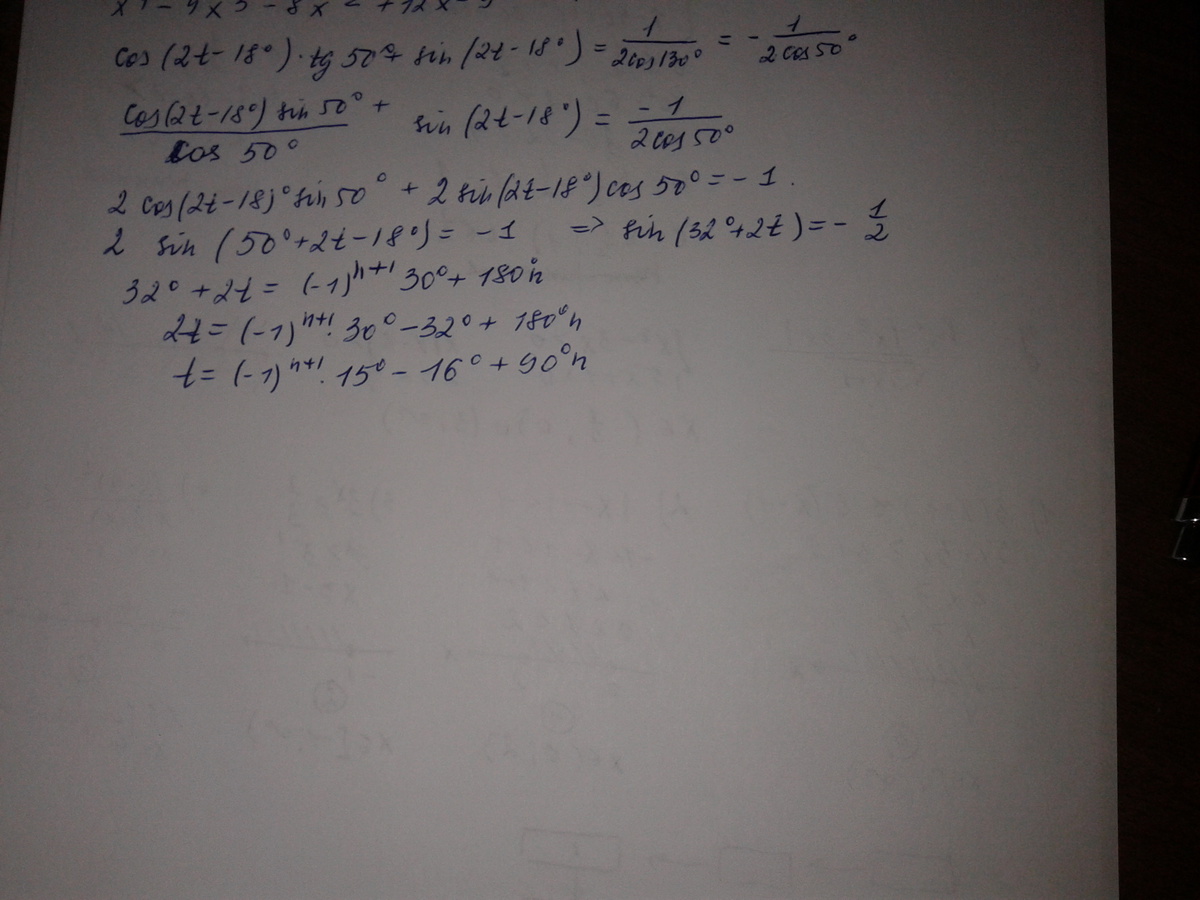 cos(2t-18°)·tg 50°+ sin(2t-18°) = 1/(2cos130°) = - 1/(2cos50°)
cos(2t-18°) sin 50°/cos 50° + sin(2t-18°) = -1/(2cos50°)
2 cos(2t-18)° sin 50° + 2 sin(2t-18°) cos 50° = -1.
2 sin (50°+2t-18°) = -1 => sin(32°+2t) = - 1/2
32° + 2t = (-1)^(n+1) 30° + 180°n
2t = (-1)^(n+1) · 30° - 32° + 180°n
t = (-1)^(n+1) · 15° - 16° + 90°n